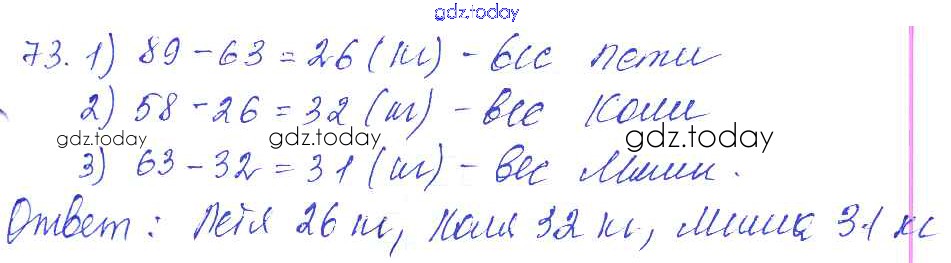 gdz.today
73. 1) 89 - 63 = 26 (кг) - вес Пети
2) 58 - 26 = 32 (кг) - вес Коли
gdz.today gdz.today gdz.today
3) 63 - 32 = 31 (кг) - вес Миши.
Ответ: Петя 26 кг, Коля 32 кг, Миша 31 кг
gdz.today gdz.today gdz.today